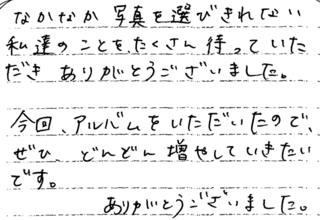 なかなか 写真を選びきれない
私達のことを、たくさん待っていた
だき ありがとうございました。
今回、アルバムをいただいたので、
ぜひ、どんどん増やしていきたい
です。
ありがとうございました。